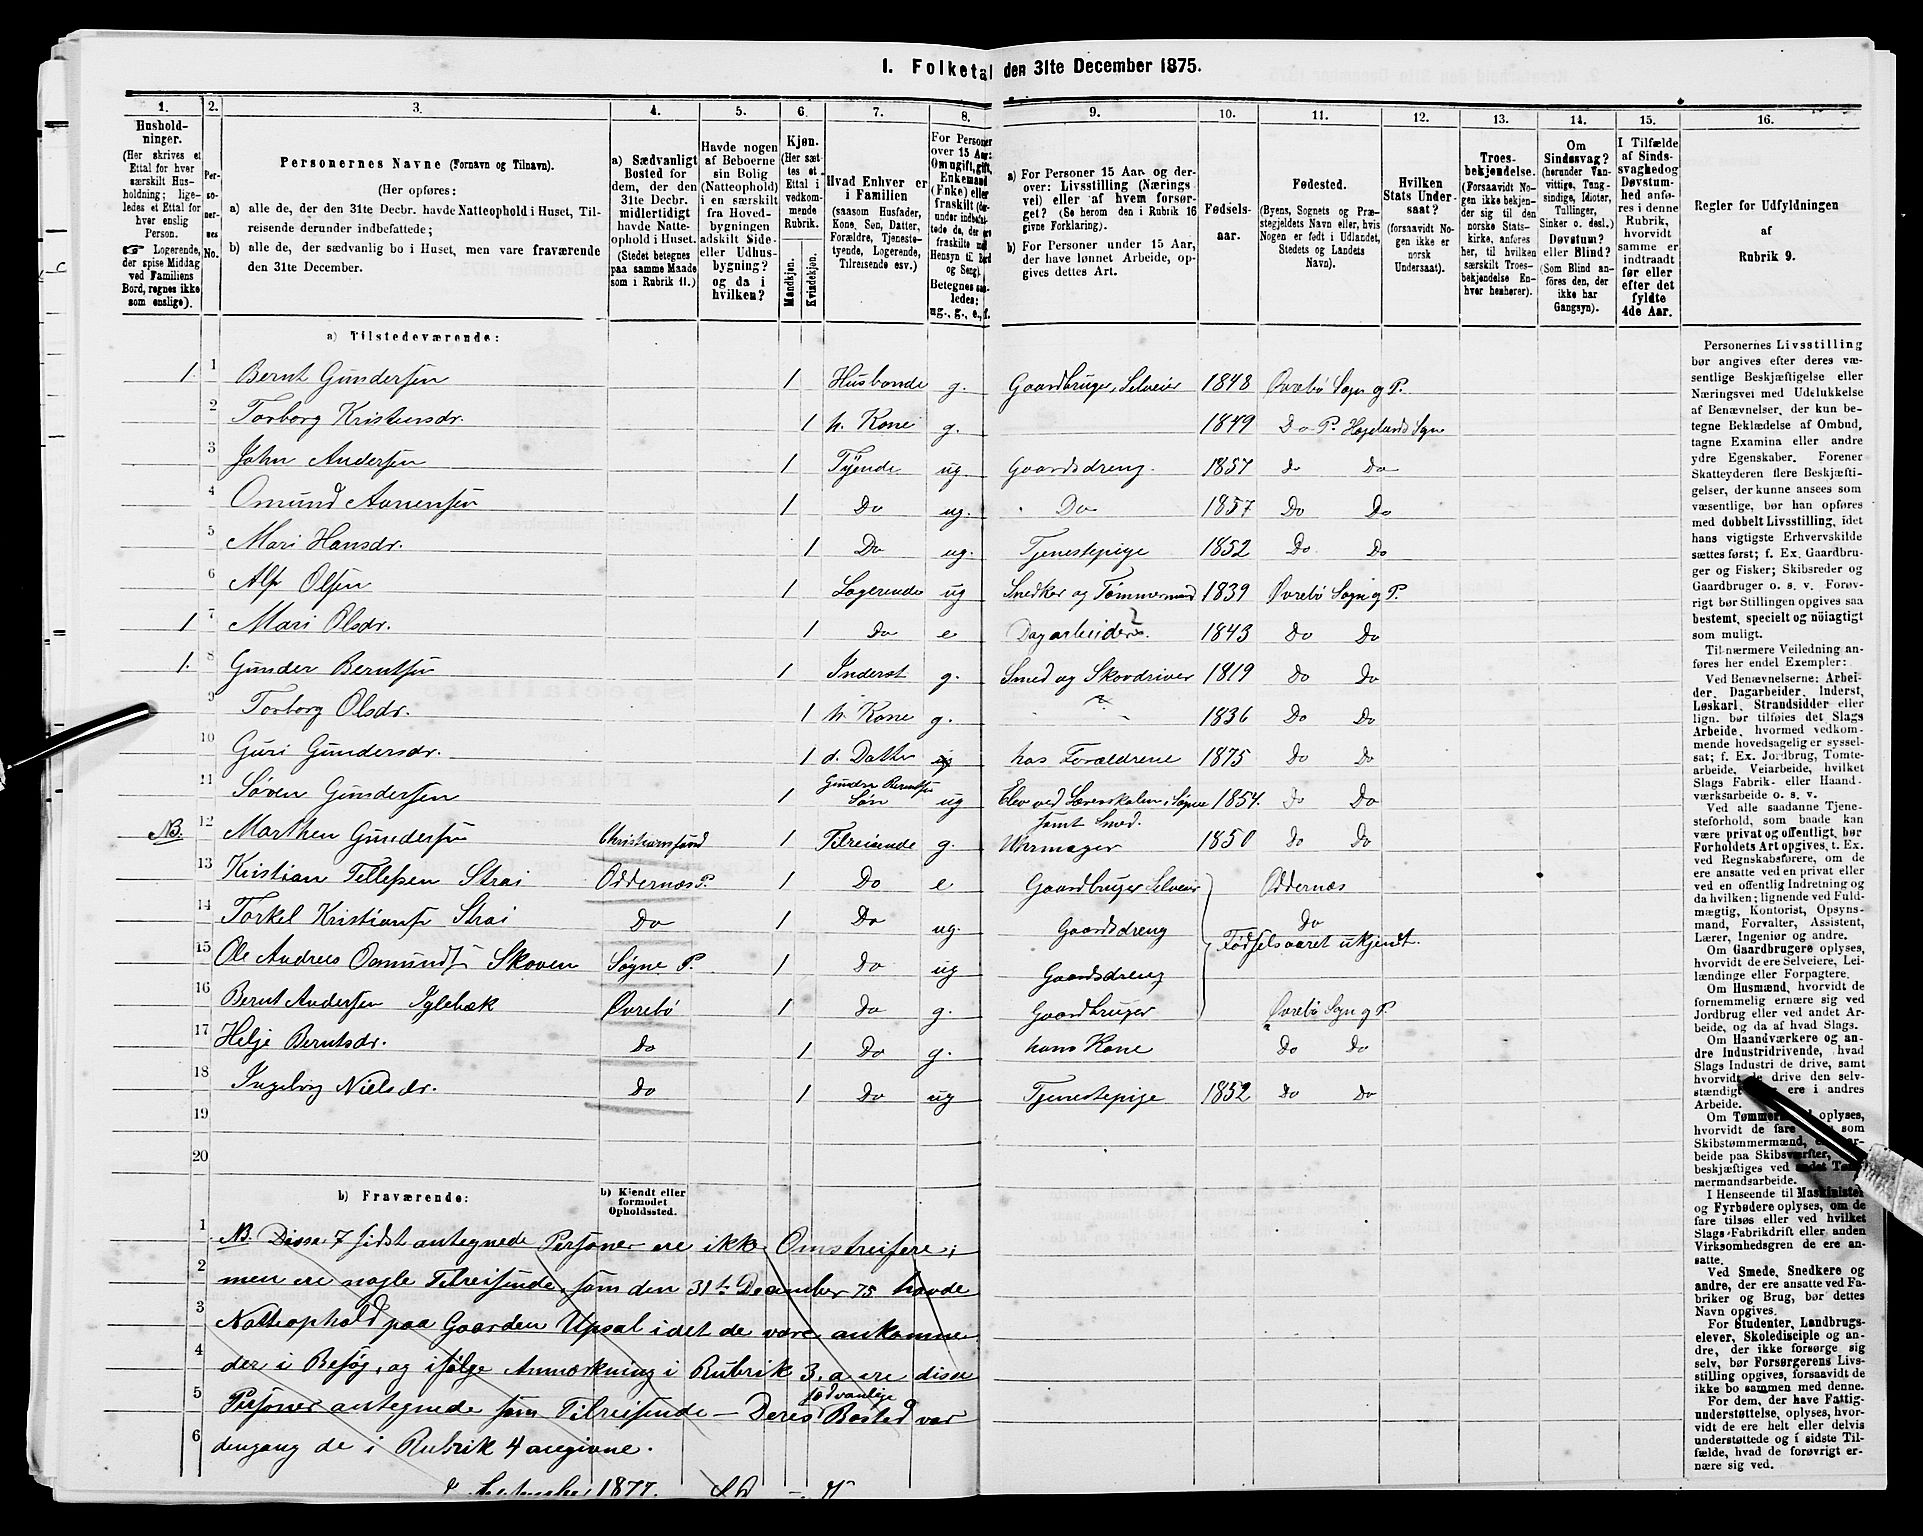 I. Folketal den 31te December 1875.
1. 2. 3. 4. 5. 6. 7. 8. 9. 10. 11. 12. 13. 14. 15. 16.
Hushold-
ninger.
(Her skrives et
Ettal for hver
særskilt Hus-
holdning; lige-
ledes et Ettal for
hver enslig
Person.
☞ Logerende,
der spise Middag
ved Familiens
Bord, regnes ikke
som enslige).
Per-
so-
ner-
nes
No.
Personernes Navne (Fornavn og Tilnavn).
(Her opføres:
a) alle de, der den 31te Decbr. havde Natteophold i Huset, Til-
reisende derunder indbefattede;
b) alle de, der sædvanlig bo i Huset, men vare fraværende
den 31te December.
a) Sædvanligt
Bosted for
dem, der den
31te Decbr.
midlertidigt
havde Natte-
ophold i Huset.
(Stedet betegnes
paa samme Maade
som i Rubrik 11.)
Havde nogen
af Beboerne
sin Bolig
(Natteophold)
i en særskilt
fra Hoved-
bygningen
adskilt Side-
eller Udhus-
bygning?
og da i
hvilken?
Kjøn.
(Her sæt-
tes et
Ettal i
vedkom-
mende
Rubrik.
Mandkjøn.
Kvindekjøn.
Hvad Enhver er
i Familien
(saasom Husfader,
Kone, Søn, Datter,
Forældre, Tjeneste-
tyende, Logerende,
Tilreisende osv.)
For Personer
over 15 Aar:
Om ugift, gift,
Enkemand
(Enke) eller
fraskilt
Betegnes saa-
ledes:
ug., g., e., f.
a) For Personer 15 Aar og der-
over: Livsstilling (Nærings
vei) eller af hvem forsør-
get? (Se herom den i Rubrik 16
givne Forklaring).
b) For Personer under 15 Aar,
der have lønnet Arbeide, op-
gives dettes Art.
Fødsels-
aar.
Fødested.
(Byens, Sognets og Præ-
stegjeldets Navn eller, hvis
Nogen er født i Udlandet,
Stedets og Landets
Navn).
Hvilken
Stats Under-
saat?
(forsaavidt No-
gen ikke er
norsk
Undersaat).
Troes-
bekjendelse.
(Forsaavidt No-
gen ikke bekjen-
der sig til den
norske Stats-
kirke, anføres
her, til hvilken
særskilt Troes-
bekjendelse En-
hver henhører).
Om
Sindssvag?
(herunder Van-
vittige, Tung-
sindige, Idioter,
Tullinger,
Sinker o. desl.)
Døvstum?
eller Blind?
(Som Blind an-
føres den, der
ikke har
Gangsyn).
I Tilfælde
af Sinds-
svaghed og
Døvstum-
hed anfø-
res i denne
Rubrik,
hvorvidt
samme er
indtraadt
før eller
efter det
fyldte
4de Aar.
Regler for Udfyldningen
af
Rubrik 9.
a) Tilstedeværende:
1. 1 Bernt Gundersen 1 Husbonde g. Gaardbruger, Selveier 1848 Øvrebø Sogn og P.
2 Torborg Kristensdr. 1 h. Kone g. 1849 Do P. Hægelands Sogn
3 John Andersen 1 Tyende ug. Gaardsdreng. 1857 do Do
4 Omund Aanensen 1 Do ug. Do 1857 Do Do
5 Mari Hansdr. 1 Do ug. Tjenestepige 1852 Do Do
6 Alf Olsen 1 Logerende ug Snedker og Tømmermand 1839 Øvrebø Sogn og P.
1 7 Mari Olsdr. 1 Do e Dagarbeiders. 1843 Do Do
1. 8 Gunder Berntsen 1 Inderst g. Smed og Skovdriver 1819 Do Do
9 Torborg Olsdr. 1 h. Kone g. 1836 Do Do
10 Guri Gundersdr. 1 d. Datter ug hos Forældrene 1875 Do Do
11 Søren Gundersen 1 Gunder Berntsen Søn ug Elev ved Lærerskolen i Søgne samt Smed. 1854. Do Do
NB. 12 Marthen Gundersen Christianssand 1 Tilreisende g. Uhrmager 1850 Do Do
13 Kristian Tellefsen Strai Oddernæs P. 1 Do e Gaardbruger Selveier Oddernæs
14 Torkel Kristians. Strai Do 1 Do ug. Gaardsdreng Do
Fødselsaaret ukjendt.
15 Ole Andreas Osmunds. Skoven Søgne P. 1 Do ug Gaardsdreng
16 Bernt Andersen Iglebæk Øvrebø 1 Do g. Gaardbruger Øvrebø Sogn og P.
17 Helje Berntsdr. Do 1 Do g. hans Kone Do Do
18 Ingeborg Nielsdr. Do 1 Do ug Tjenestepige 1852 Do Do
19
20
b) Fraværende:
b) Kjendt eller
formodet
Opholdssted.
1 NB. Disse 7 sidst antegnede Personer ere ikke Omstreifere;
2 men ere nogle Tilreisende, som den 31te December 75 havde
3 Natteophold paa Gaarden Upsal idet de vare ankomme
4 der i Besøg, og ifølge Anmærkning i Rubrik 3. a ere disse
5 Personer antegnede som Tilreisende – Deres sædvanlige Bosted var
6 dengang de i Rubrik 4 angivne.
1877.
Personernes Livsstilling
bør angives efter deres væ-
sentlige Beskjæftigelse eller
Næringsvei med Udelukkelse
af Benævnelser, der kun be-
tegne Beklædelse af Ombud,
tagne Examina eller andre
ydre Egenskaber. Forener
Skatteyderen flere Beskjæfti-
gelser, der kunne ansees som
væsentlige, bør han opføres
med dobbelt Livsstilling, idet
hans vigtigste Erhvervskilde
sættes først; f. Ex. Gaardbru-
ger og Fisker; Skibsreder og
Gaardbruger o. s. v. Forøv-
rigt bør Stillingen opgives saa
bestemt, specielt og nöiagtigt
som muligt.
Til nærmere Veiledning an-
føres her endel Exempler:
Ved Benævnelserne: Arbei-
der, Dagarbeider, Inderst,
Løskarl, Strandsidder eller
lign. bør tilføies det Slags
Arbeide, hvormed vedkom-
mende hovedsagelig er syssel-
sat; f. Ex. Jordbrug, Tomte-
arbeide, Veiarbeide, hvilket
Slags Fabrik- eller Haand-
værksarbeide o. s. v.
Ved alle saadanne Tjene-
steforhold, som baade kan
være privat og offentligt, bør
Forholdets Art opgives, t. Ex.
ved Regnskabsførere, om de
ere ansatte ved en privat eller
ved en offentlig Indretning og
da hvilken; lignende ved Fuld-
mægtig, Kontorist, Opsyns-
mand, Forvalter, Assistent,
Lærer, Ingeniør og andre.
Om Gaardbrugere oplyses,
hvorvidt de ere Selveiere, Lei-
lændinge eller Forpagtere.
Om Husmænd, hvorvidt de
fornemmelig ernære sig ved
Jordbrug eller ved andet Ar-
beide, og da af hvad Slags.
Om Haandværkere og an-
dre Industridrivende, hvad
Slags Industri de drive, samt
hvorvidt de drive den selv-
stændigt ere i andres
Arbeide.
Om oplyses,
hvorvidt de fare som
Skibstømmermænd,
beide paa Skibsværfter,
beskjæftiges ved andet Tøm-
mermandsarbeide.
I Henseende til Maskinister
og Fyrbødere oplyses, om de
fare tilsøs eller ved hvilket
Slags Fabrikdrift eller anden
Virksomhedsgren de ere an-
satte.
Ved Smede, Snedkere og
andre, der ere ansatte ved Fa-
briker og Brug, bør dettes
Navn opgives.
For Studenter, Landbrugs-
elever, Skoledisciple og an-
dre, der ikke forsørge sig
selv, bør Forsørgerens Livs-
stilling opgives, forsaavidt de
ikke bo sammen med denne.
For dem, der have Fattig-
understøttelse, oplyses, hvor-
vidt de ere helt eller delvis
understøttede og i sidste Til-
fælde, hvad de forøvrigt er-
nære sig ved.